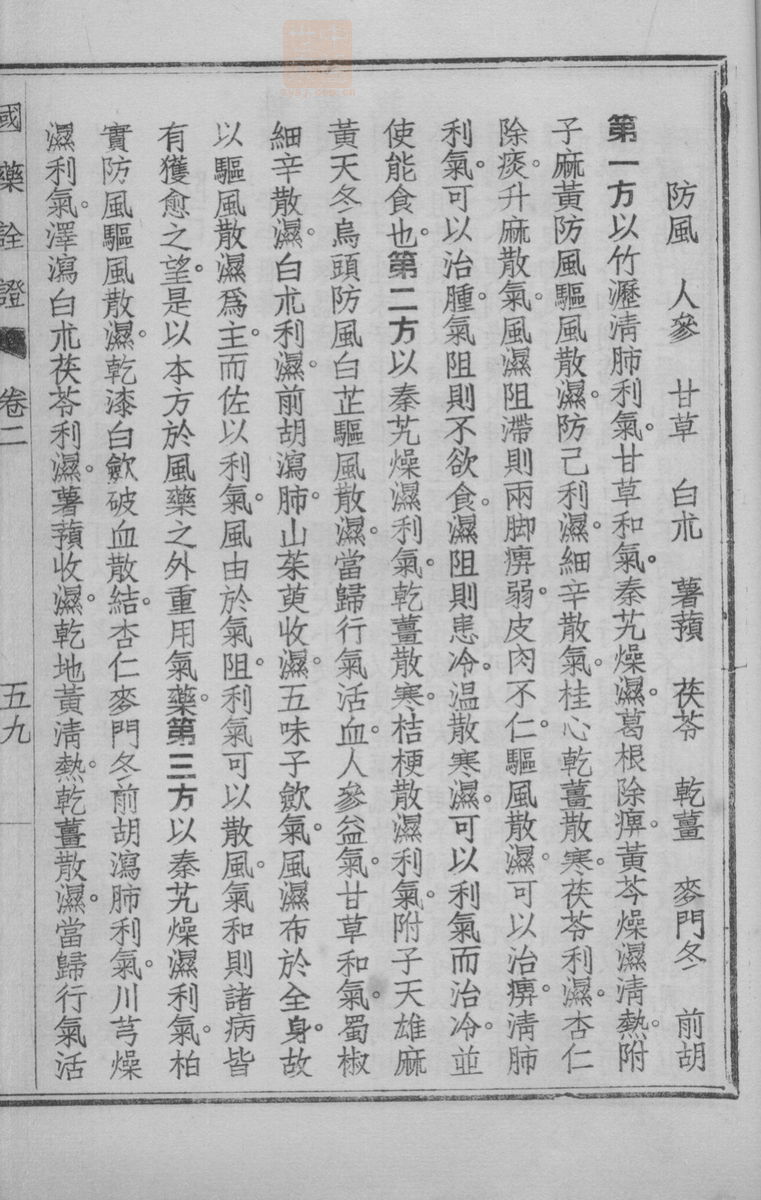 防風　人參　甘草　白朮　薯蕷　茯苓　乾薑　麥門冬　前胡
第一方以竹瀝清肺利氣。甘草和氣。秦艽燥濕。葛根除痹。黃芩燥濕清熱。附
子麻黃防風驅風散濕。防己利濕。細辛散氣。桂心乾薑散寒。茯苓利濕。杏仁
除痰。升麻散氣。風濕阻滯則兩脚痹弱。皮肉不仁。驅風散濕。可以治痹。清肺
利氣。可以治腫。氣阻則不欲食。濕阻則恚冷。温散寒濕。可以利氣而治冷。並
使能食也。第二方以秦艽燥濕利氣。乾薑散寒。桔梗散濕利氣。附子天雄麻
黃天冬烏頭防風白芷驅風散濕。當歸行氣活血。人參益氣。甘草和氣。蜀椒
細辛散濕。白朮利濕。前胡瀉肺。山茱萸收濕。五味子歛氣。風濕布於全身。故
以驅風散濕爲主。而佐以利氣。風由於氣阻。利氣可以散風。氣和則諸病皆
有獲愈之望。是以本方於風藥之外重用氣藥。第三方以秦艽燥濕利氣。柏
實防風驅風散濕。乾漆白歛破血散結。杏仁麥門冬前胡瀉肺利氣。川芎燥
濕利氣。澤瀉白朮茯苓利濕。薯蕷收濕。乾地黃清熱。乾薑散濕。當歸行氣活
國藥詮證　卷二　五九